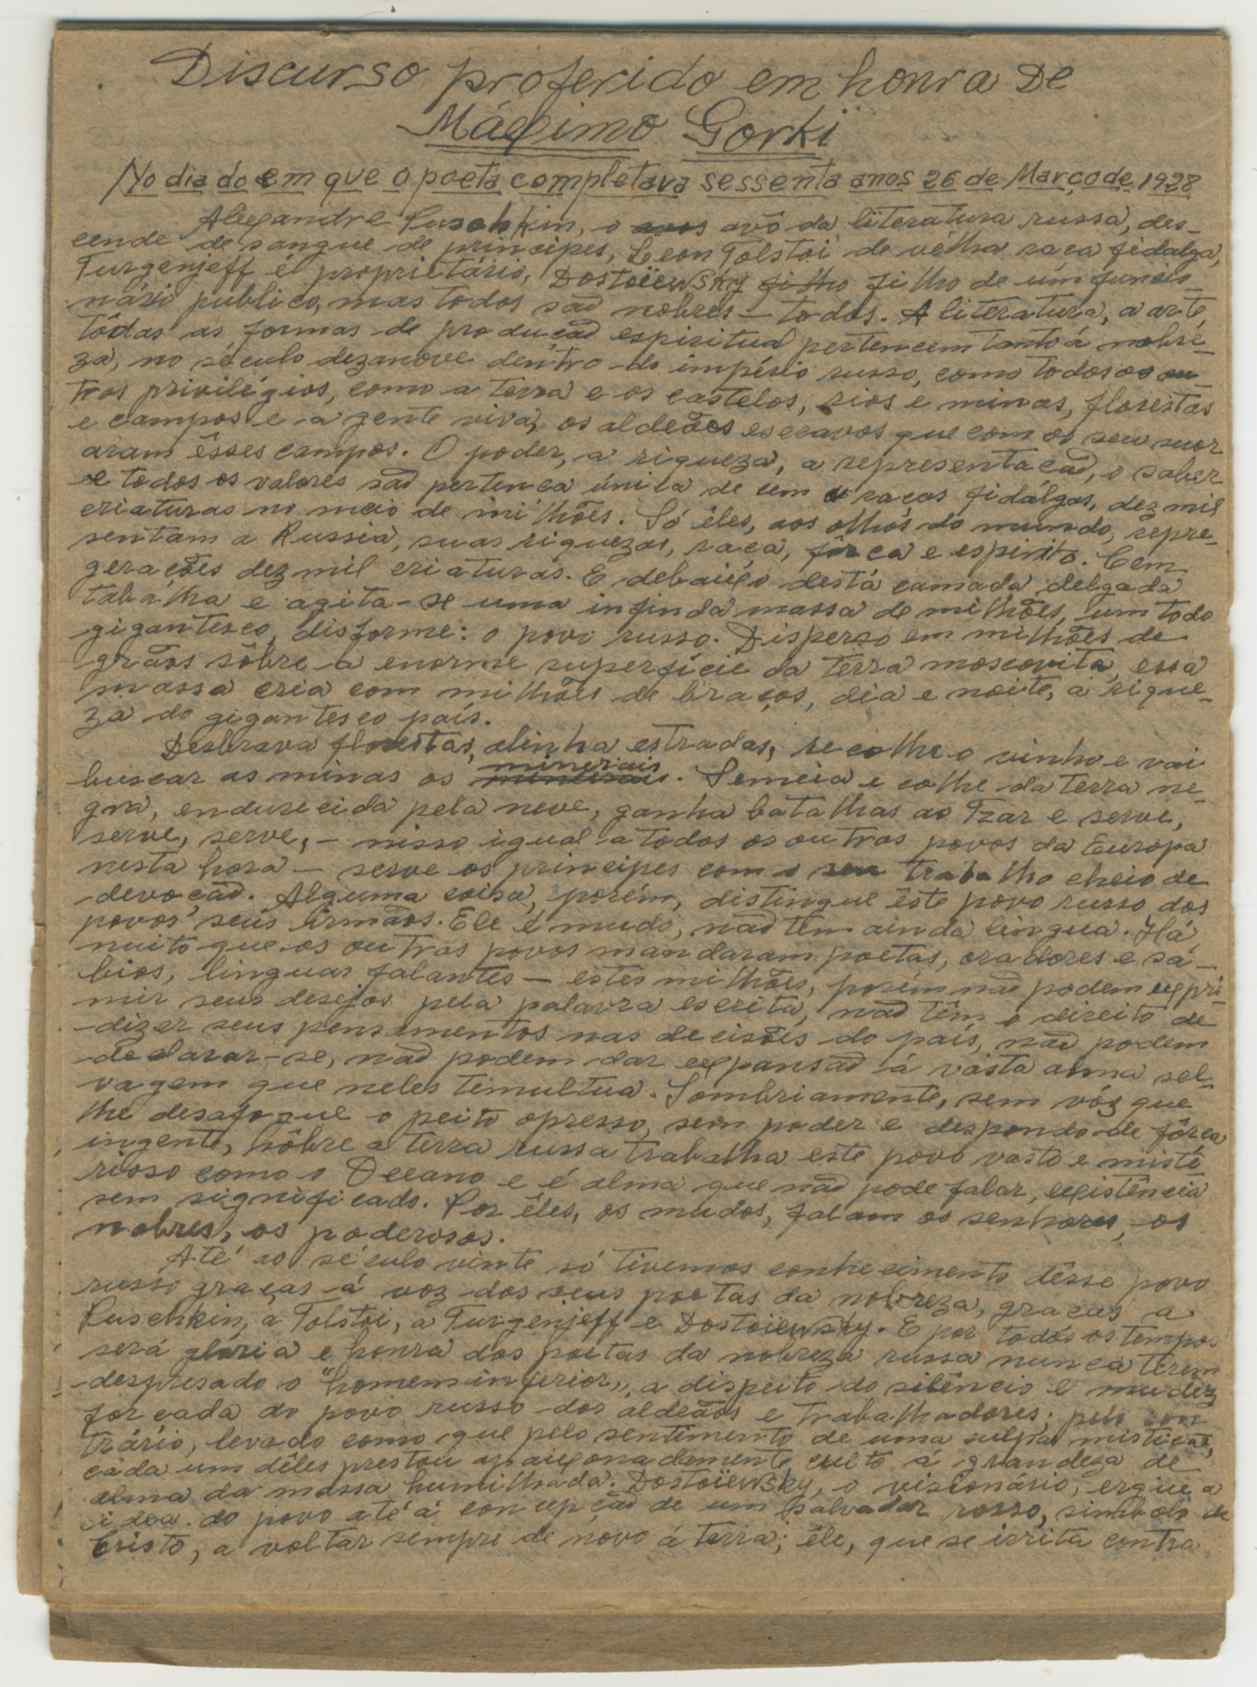 Discurso proferido em honra De
Máximo Gorki
No dia do em que o poeta completava sessenta anos 26 de Março de 1928
Alexandre Puschkin, o avô da literatura russa, des-
cende de sangue de principes, Leon Tolstoi de velha raça fidalga,
Turgenjeff é proprietário, Dostoïewsky filho filho de um funcio-
nário publico, mas todos são nobres - todos. A literatura, a arte,
tôdas as formas de produção espiritual pertencem tanto á nobre-
za, no século dezanove dentro do império russo, como todos os ou
tros privilégios, como a terra e os castelos, rios e minas, florestas
e campos e a gente viva, os aldeãos escravos que com o seu suor
aram êsses campos. O poder, a riqueza, a representação, o saber
e todos os valores são pertença única de cem raças fidálgas, dez mil
criaturas no meio de milhões. Só êles, aos olhos do mundo, repre-
sentam a Russia, suas riquezas, raça, fôrça e espirito. Cem
gerações dez mil criaturas. E debaixo desta camada delgada
trabalha e agita-se uma infinda massa de milhões, um todo
gigantesco, disforme: o povo russo. Disperso em milhões de
grãos sôbre a enorme superficie da terra moscovita, essa
massa cria com milhões de braços, dia e noite, a rique-
za do gigantesco país.
Desbrava florestas, alinha estradas, recolhe o vinho e vai
buscar as minas os minerais. Semeia e colhe da terra ne-
gra, endurecida pela neve, ganha batalhas ao Tzar e serve,
serve, serve, - nisso igual a todos os outros povos da Europa
nesta hora - serve os principes com o seu trabalho cheio de
devoção. Alguma coisa, porém, distingue êste povo russo dos
povos seus irmãos. Ele é mudo, não têm ainda lingua. Há
muito que os outros povos mandaram poetas, oradores e sá-
bios, linguas falantes - estes milhões, porém não podem expri-
mir seus desejos pela palavra escrita, não têm o direito de
dizer seus pensamentos nas decisões do país, não podem
declarar-se, não podem dar expansão á vasta alma sel-
vagem que neles tumultua. Sombriamente, sem vóz que
lhe desafogue o peito opresso, sem poder e dispondo de fôrça
ingente, sôbre a terra russa trabalha este povo vasto e misté
rioso como o Oceano e é alma que não pode falar, existência
sem significado. Por êles, os mudos, falam os senhores, os
nobres, os poderosos.
Até ao século vinte só tivemos conhecimento dêsse povo
russo graças á voz dos seus poetas da nobreza, graças a
Puschkin, a Tolstoi, a Turgenjeff e Dostoiewsky. E por todos os tempos
será glória e honra dos poetas da nobreza russa nunca terem
despresado o "homem inferior", a dispeito do silêncio e mudez
forçada do povo russo dos aldeãos e trabalhadores; pelo con
trário, levado como que pelo sentimento de uma culpa mistica,
cada um dêles prestou apaixonadamente culto á grandeza de
alma da massa humilhada. Dostoïewsky, o visionário, ergue a
idea do povo até á concepção de um salvador rosso, simbolo de
Cristo, a voltar sempre de novo á terra; êle, que se irrita contra